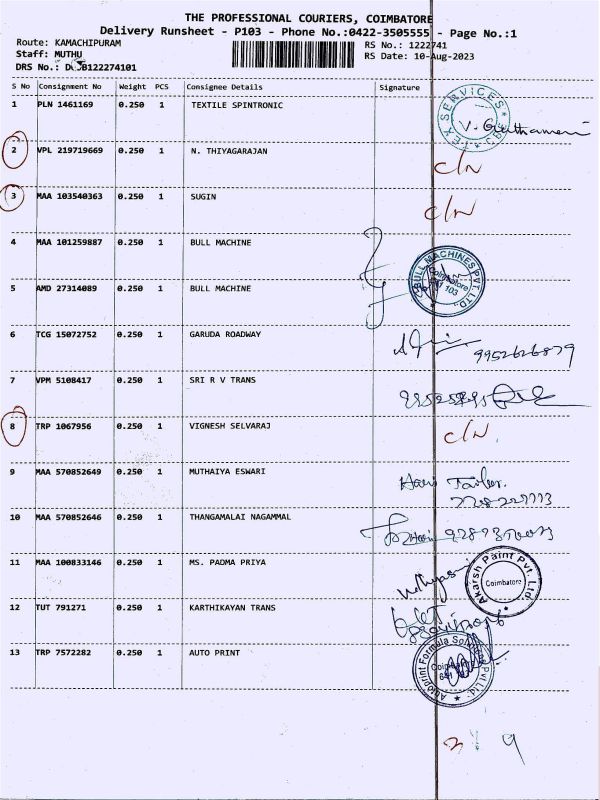 THE PROFESSIONAL COURIERS, COIMBATORE
Delivery Runsheet - P103 - Phone No.:0422-3505555 - Page No.:1
Route: KAMACHIPURAM
RS No.: 1222741
Staff: MUTHU
RS Date: 10-Aug-2023
DRS No.: B122274101
S No Consignment No Weight PCS Consignee Details Signature
1 PLN 1461169 0.250 1 TEXTILE SPINTRONIC
TEX SERVICES
2 VPL 219719669 0.250 1 N. THIYAGARAJAN C/N
3 MAA 103540363 0.250 1 SUGIN C/N
4 MAA 101259887 0.250 1 BULL MACHINE
BULL MACHINES PVT. LTD.
Coimbatore
5 AMD 27314089 0.250 1 BULL MACHINE
6 TCG 15072752 0.250 1 GARUDA ROADWAY
9952626879
7 VPM 5108417 0.250 1 SRI R V TRANS
8 TRP 1067956 0.250 1 VIGNESH SELVARAJ C/N
9 MAA 570852649 0.250 1 MUTHAIYA ESWARI
10 MAA 570852646 0.250 1 THANGAMALAI NAGAMMAL
11 MAA 100833146 0.250 1 MS. PADMA PRIYA
Akarsh Paint Pvt. Ltd
Coimbatore
12 TUT 791271 0.250 1 KARTHIKAYAN TRANS
13 TRP 7572282 0.250 1 AUTO PRINT
Autoprint Formula Solutions Pvt Ltd
3 9